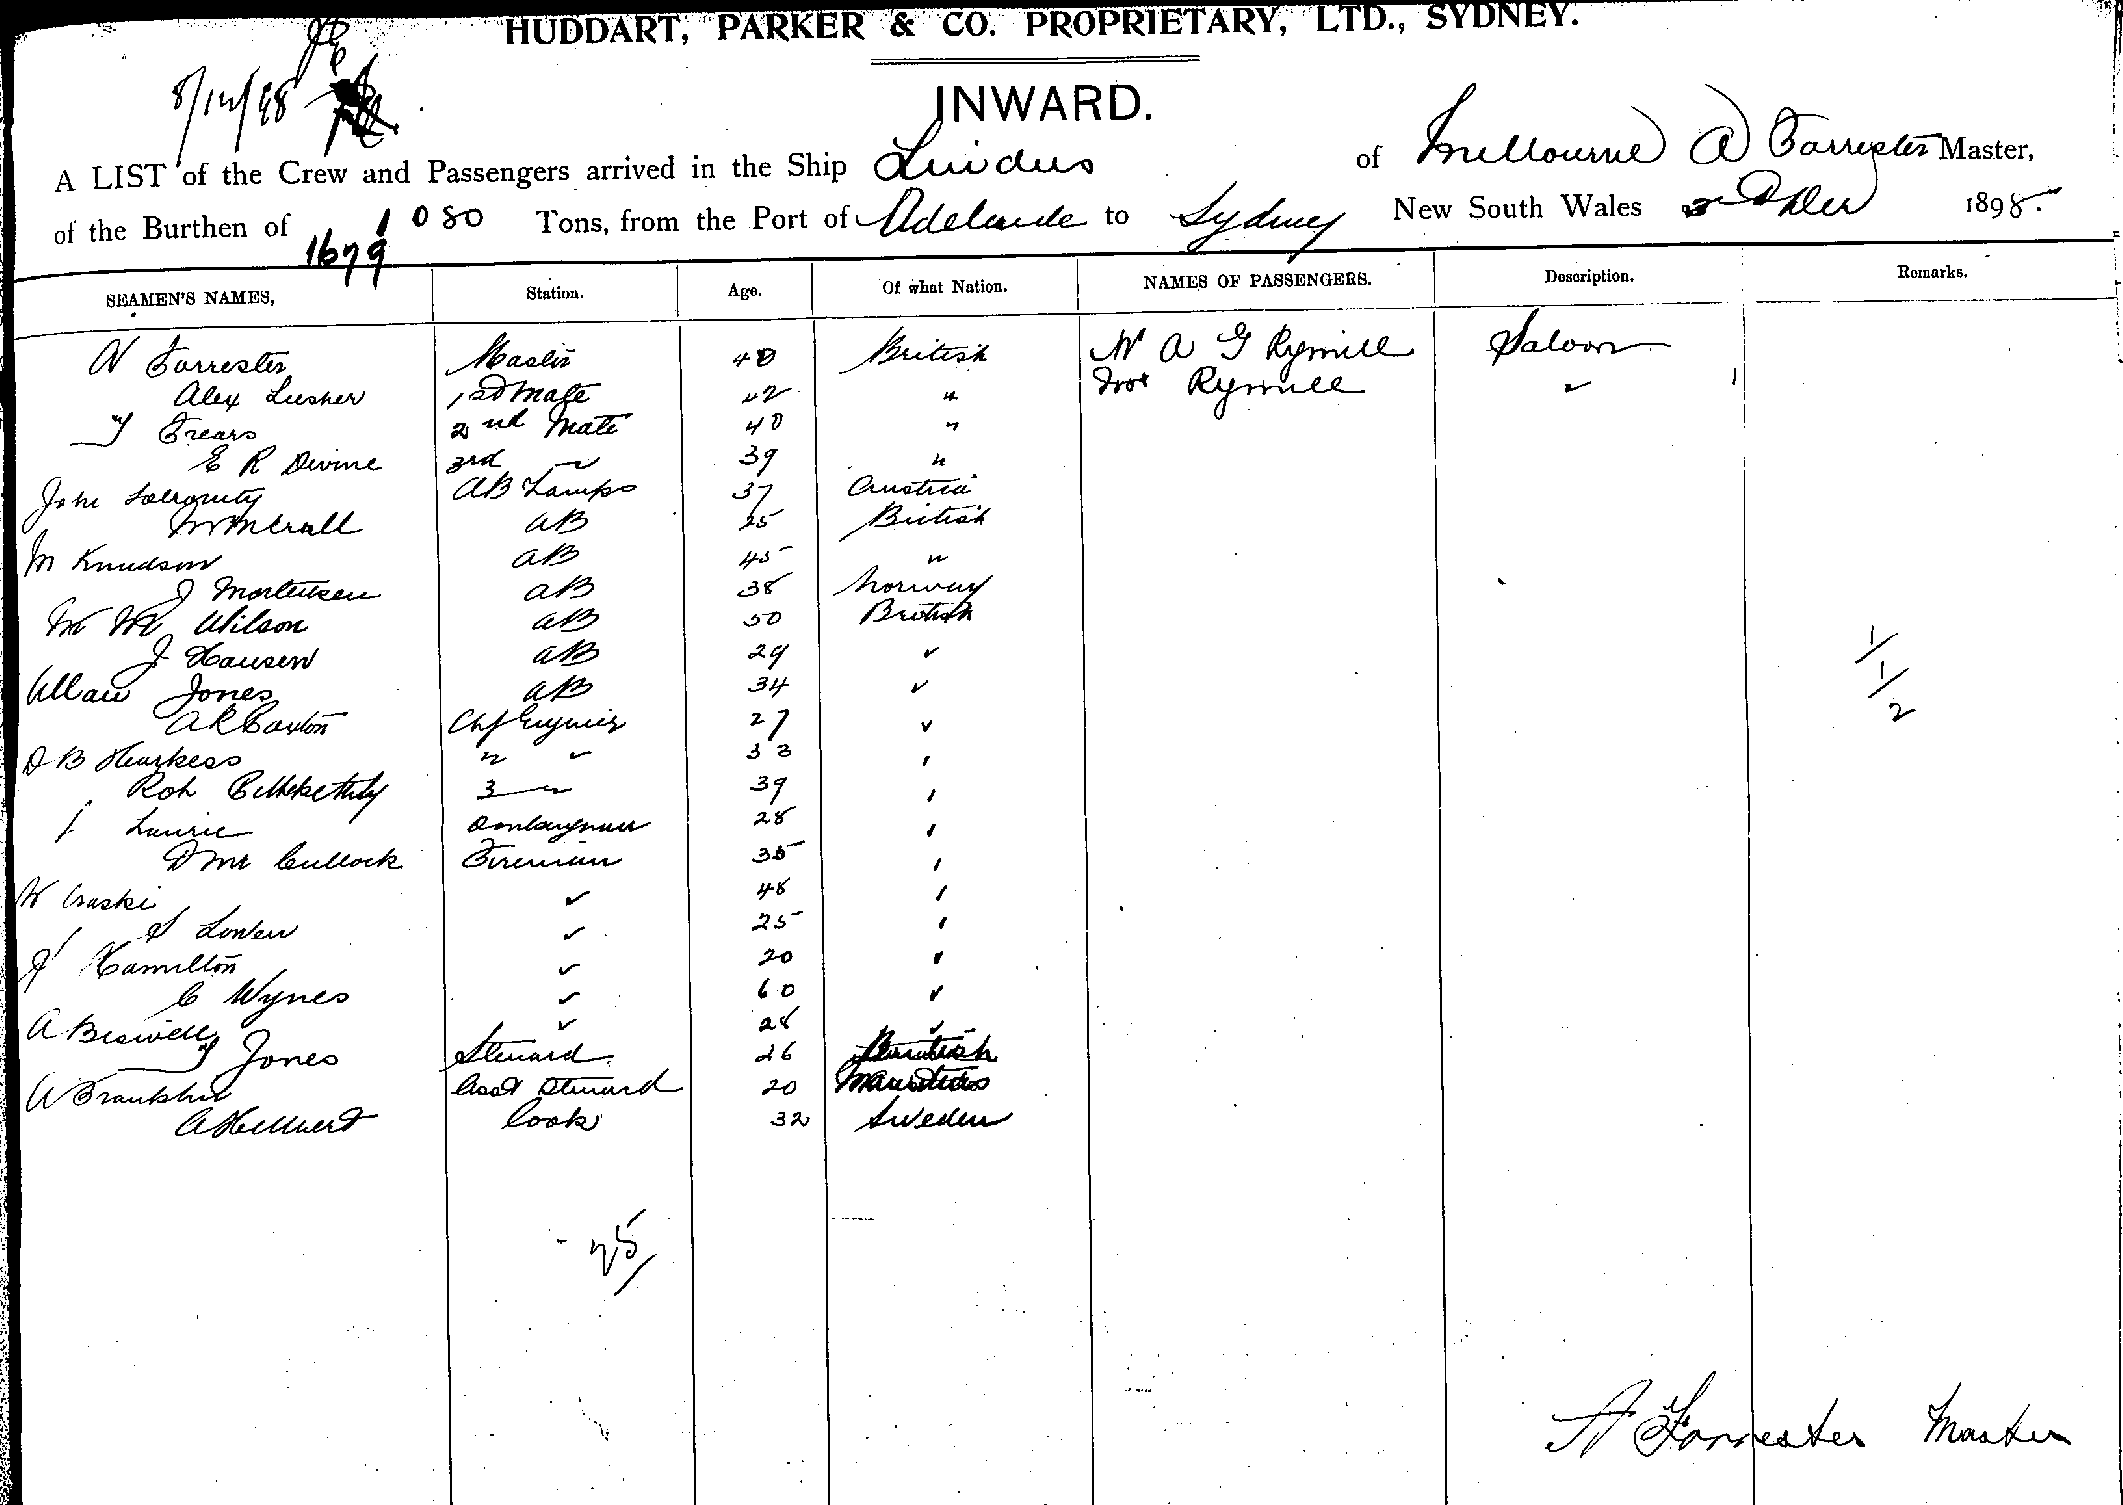 HUDDART, PARKER & CO. PROPRIETARY, LTD., SYDNEY.
8/12/98
INWARD.
A LIST of the Crew and Passengers arrived in the Ship Lindus of Melbourne A Forrester Master,
of the Burthen of 1080 Tons, from the Port of Adelaide to Sydney New South Wales Dec 1898.
1679
SEAMEN'S NAMES, Station. Age. Of what Nation. NAMES OF PASSENGERS. Description. Remarks.
A Forrester Master 40 British A G Rymill Saloon
Alex Lusher 1st Mate 42 " Mrs Rymill "
Frears 2nd Mate 40 "
E R Devine 3rd " 39 "
John AB Lamps 37 Austria
AB 25 British
M Knudson AB 45 "
J Mortensen AB 38 Norway
Wilson AB 50 British
J Hansen AB 29 "
Allan Jones AB 34 "
A R Caxton Chf Engineer 27 "
D B Hearkess 2 " 33 "
Rob 3 " 39 "
Laurie 28 "
D Mc Cullock Fireman 35 "
W Craske " 48 "
S Lowen " 25 "
Hamilton " 20 "
C Wynes " 60 "
A Beswell " 28 "
Jones Steward 26 British
A Franklin Asst Steward 20 Mauritius
Cook 32 Sweden
1
1
2
25
A Forrester Master